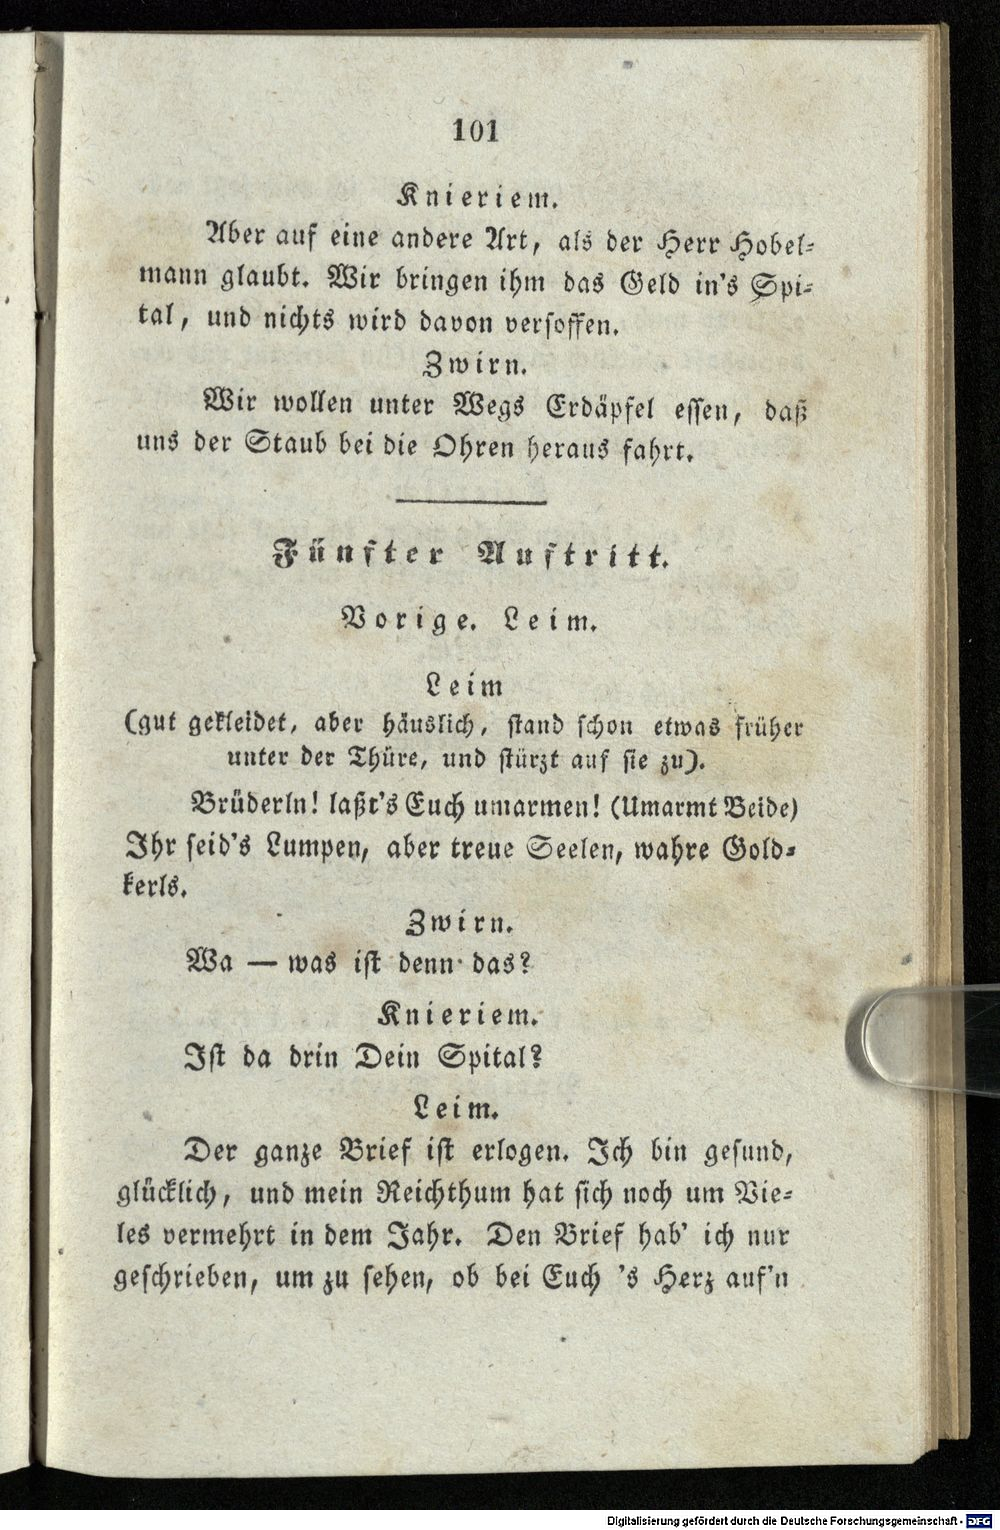 101
Knieriem.
Aber auf eine andere Art, als der Herr Hobel-
mann glaubt. Wir bringen ihm das Geld in's Spi-
tal, und nichts wird davon versoffen.
Zwirn.
Wir wollen unter Wegs Erdäpfel essen, daß
uns der Staub bei die Ohren heraus fahrt.
Fünfter Auftritt.
Vorige. Leim.
Leim
(gut gekleidet, aber häuslich, stand schon etwas früher
unter der Thüre, und stürzt auf sie zu).
Brüderln! laßt's Euch umarmen! (Umarmt Beide)
Ihr seid's Lumpen, aber treue Seelen, wahre Gold-
kerls.
Zwirn.
Wa — was ist denn das?
Knieriem.
Ist da drin Dein Spital?
Leim.
Der ganze Brief ist erlogen. Ich bin gesund,
glücklich, und mein Reichthum hat sich noch um Vie-
les vermehrt in dem Jahr. Den Brief hab' ich nur
geschrieben, um zu sehen, ob bei Euch 's Herz auf'n
Digitalisierung gefördert durch die Deutsche Forschungsgemeinschaft - DFG